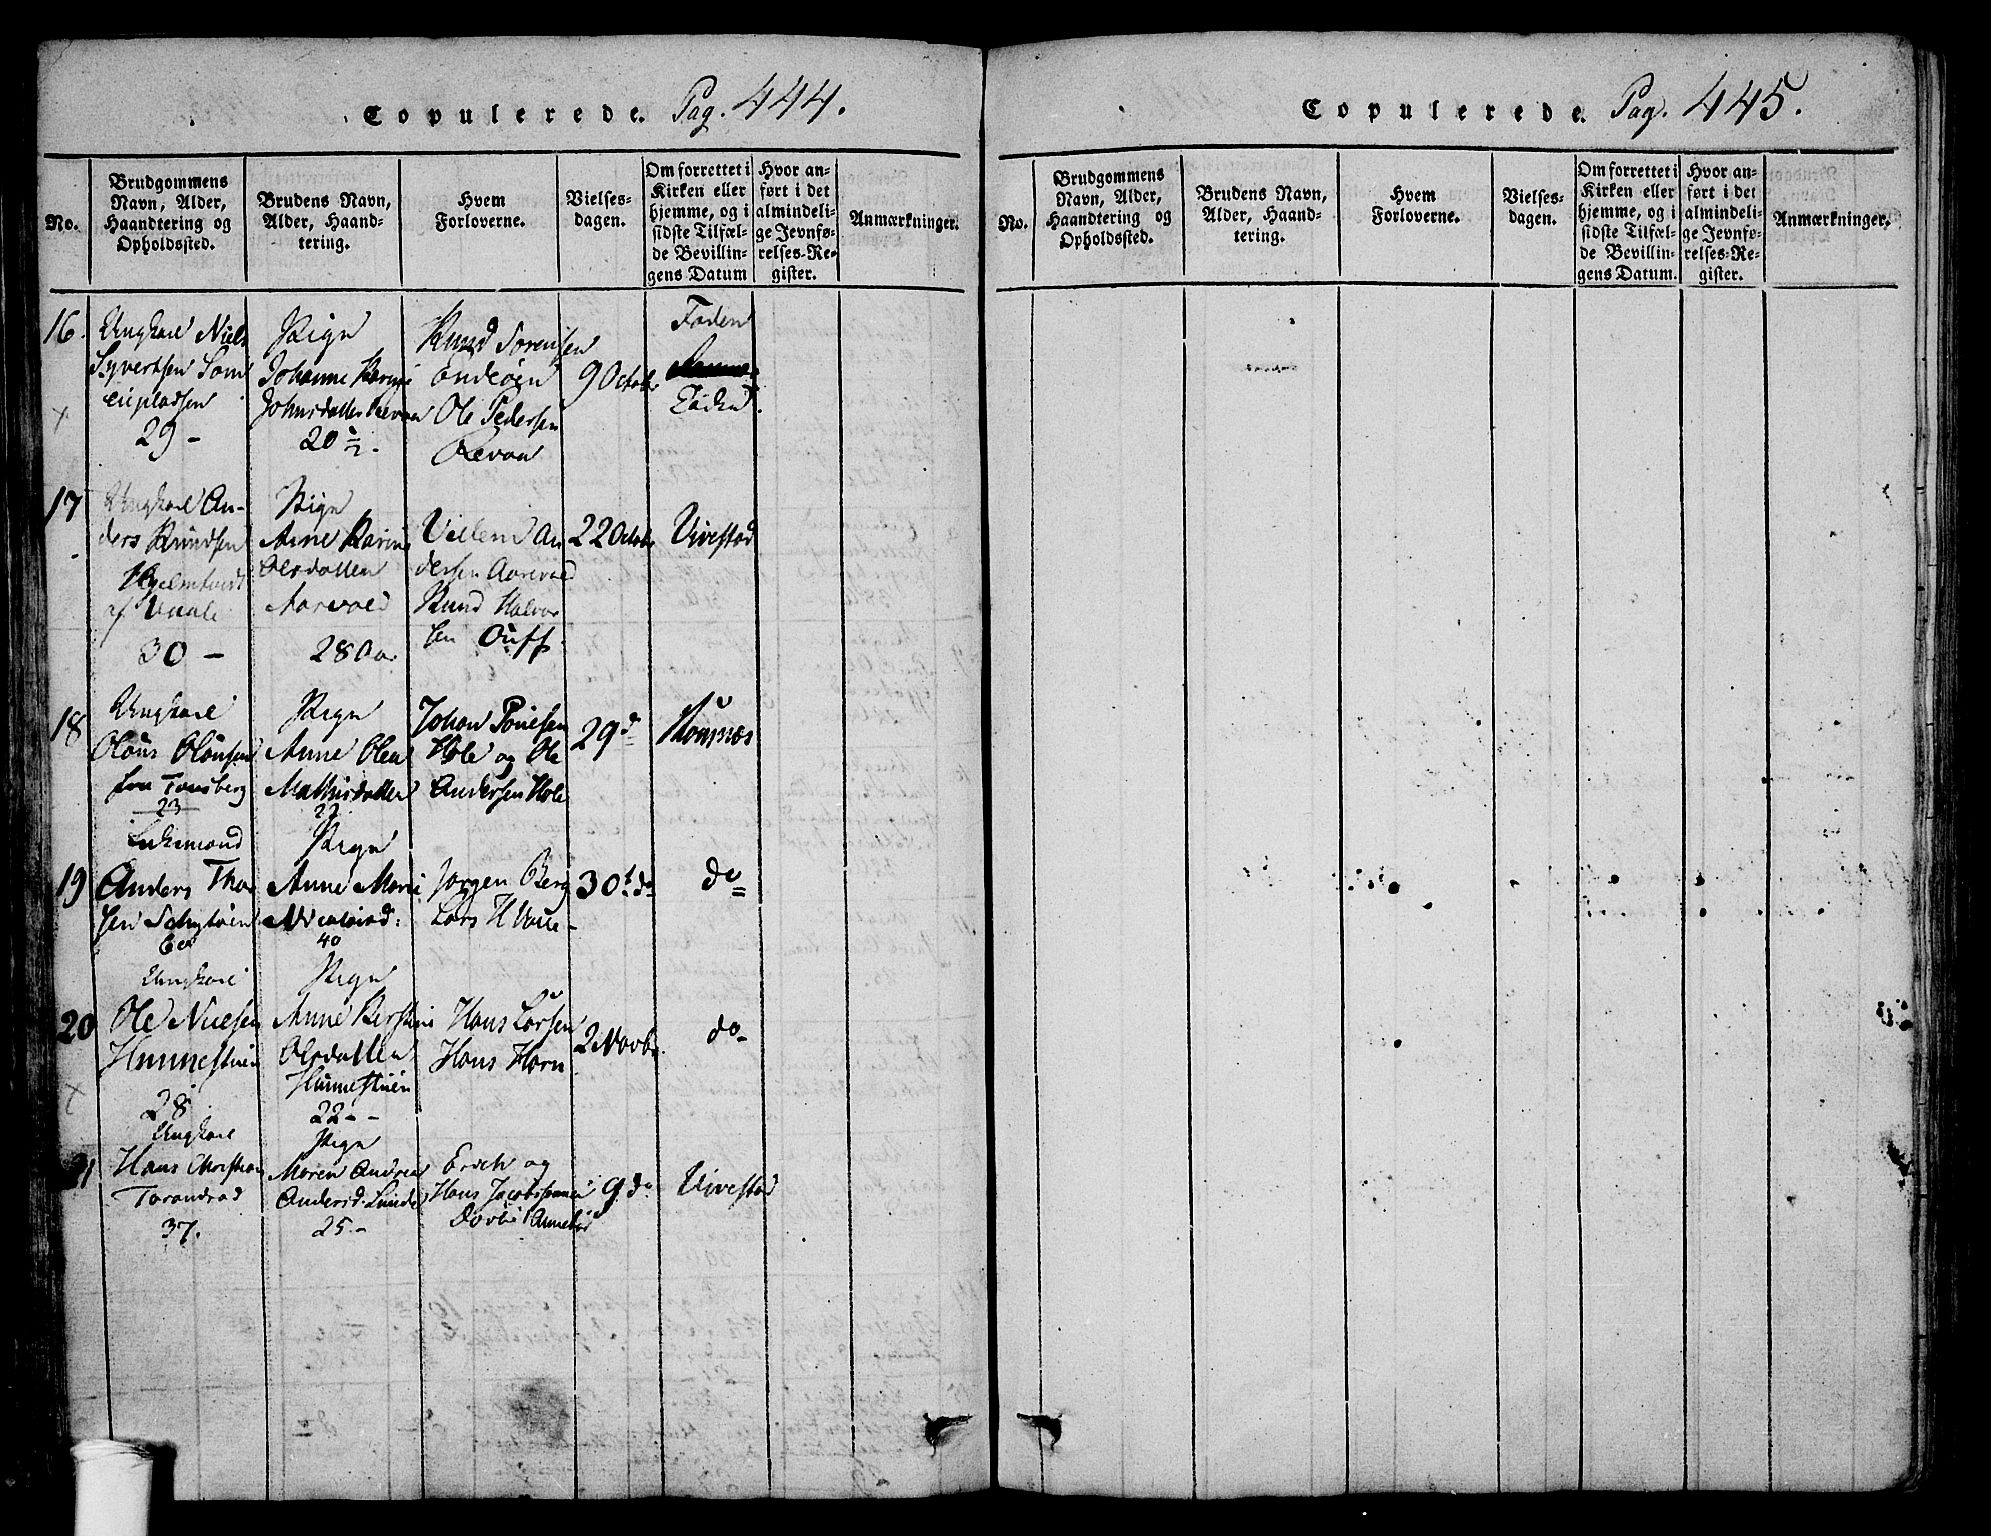 Copulerede. Pag. 444.
No.
Brudgommens
Navn, Alder,
Haandtering og
Opholdssted.
Brudens Navn,
Alder, Haand-
tering.
Hvem
Forloverne.
Vielses-
dagen.
Om forrettet i
Kirken eller
hjemme, og i
sidste Tilfæl-
de Bevillin-
gens Datum
Hvor an-
ført i det
almindeli-
ge Jevnfø-
relses-Re-
gister.
Anmærkninger.
16.
Ungkarl Niels
Syvertsen
eiepladsen
29 -
Pige
Johanne Karine
Johnsdatter Revaa
20 ½.
Knud Sorensen
Endsøen
Ole Pedersen
Revaa
9 Octob
17
Ungkarl An-
ders Knudsen
af Vaale
30 -
Pige
Anne Karine
Olsdatter
Aarevold
28 Aar
Villem An
dersen Aarevold
Knud Halvor
sen
22 Octob
Vivestad
18
Ungkarl
Olaus Olausen
fra Tønsberg
23
Pige
Anne Olea
Mathisdatter
22
Johan
Hole og Ole
Andersen Hole
29 d
Ramnæs
19
Enkemand
Anders Thor
sen
60
Pige
Anne Marie
Nicolaisd:
40
Jørgen Berg
Lars H
30t do
do
20
Ungkarl
Ole Nielsen
Hunnestuen
28
Pige
Anne Kirstine
Olsdatter
Hunnestuen
22 - -
Hans Larsen
Hans Horn
2 Novbr.
do
21
Ungkarl
Hans Christian
37.
Pige
Maren Andrea
Andersd. Linde
25 -
Erich og
Hans
9 do
Vivestad
Copulerede. Pag. 445.
No.
Brudgommens
Navn, Alder,
Haandtering og
Opholdssted.
Brudens Navn,
Alder, Haand-
tering.
Hvem
Forloverne.
Vielses-
dagen.
Om forrettet i
Kirken eller
hjemme, og i
sidste Tilfæl-
de Bevillin-
gens Datum.
Hvor an-
ført i det
almindeli-
ge Jevnfø-
relses-Re-
gister.
Anmærkninger.